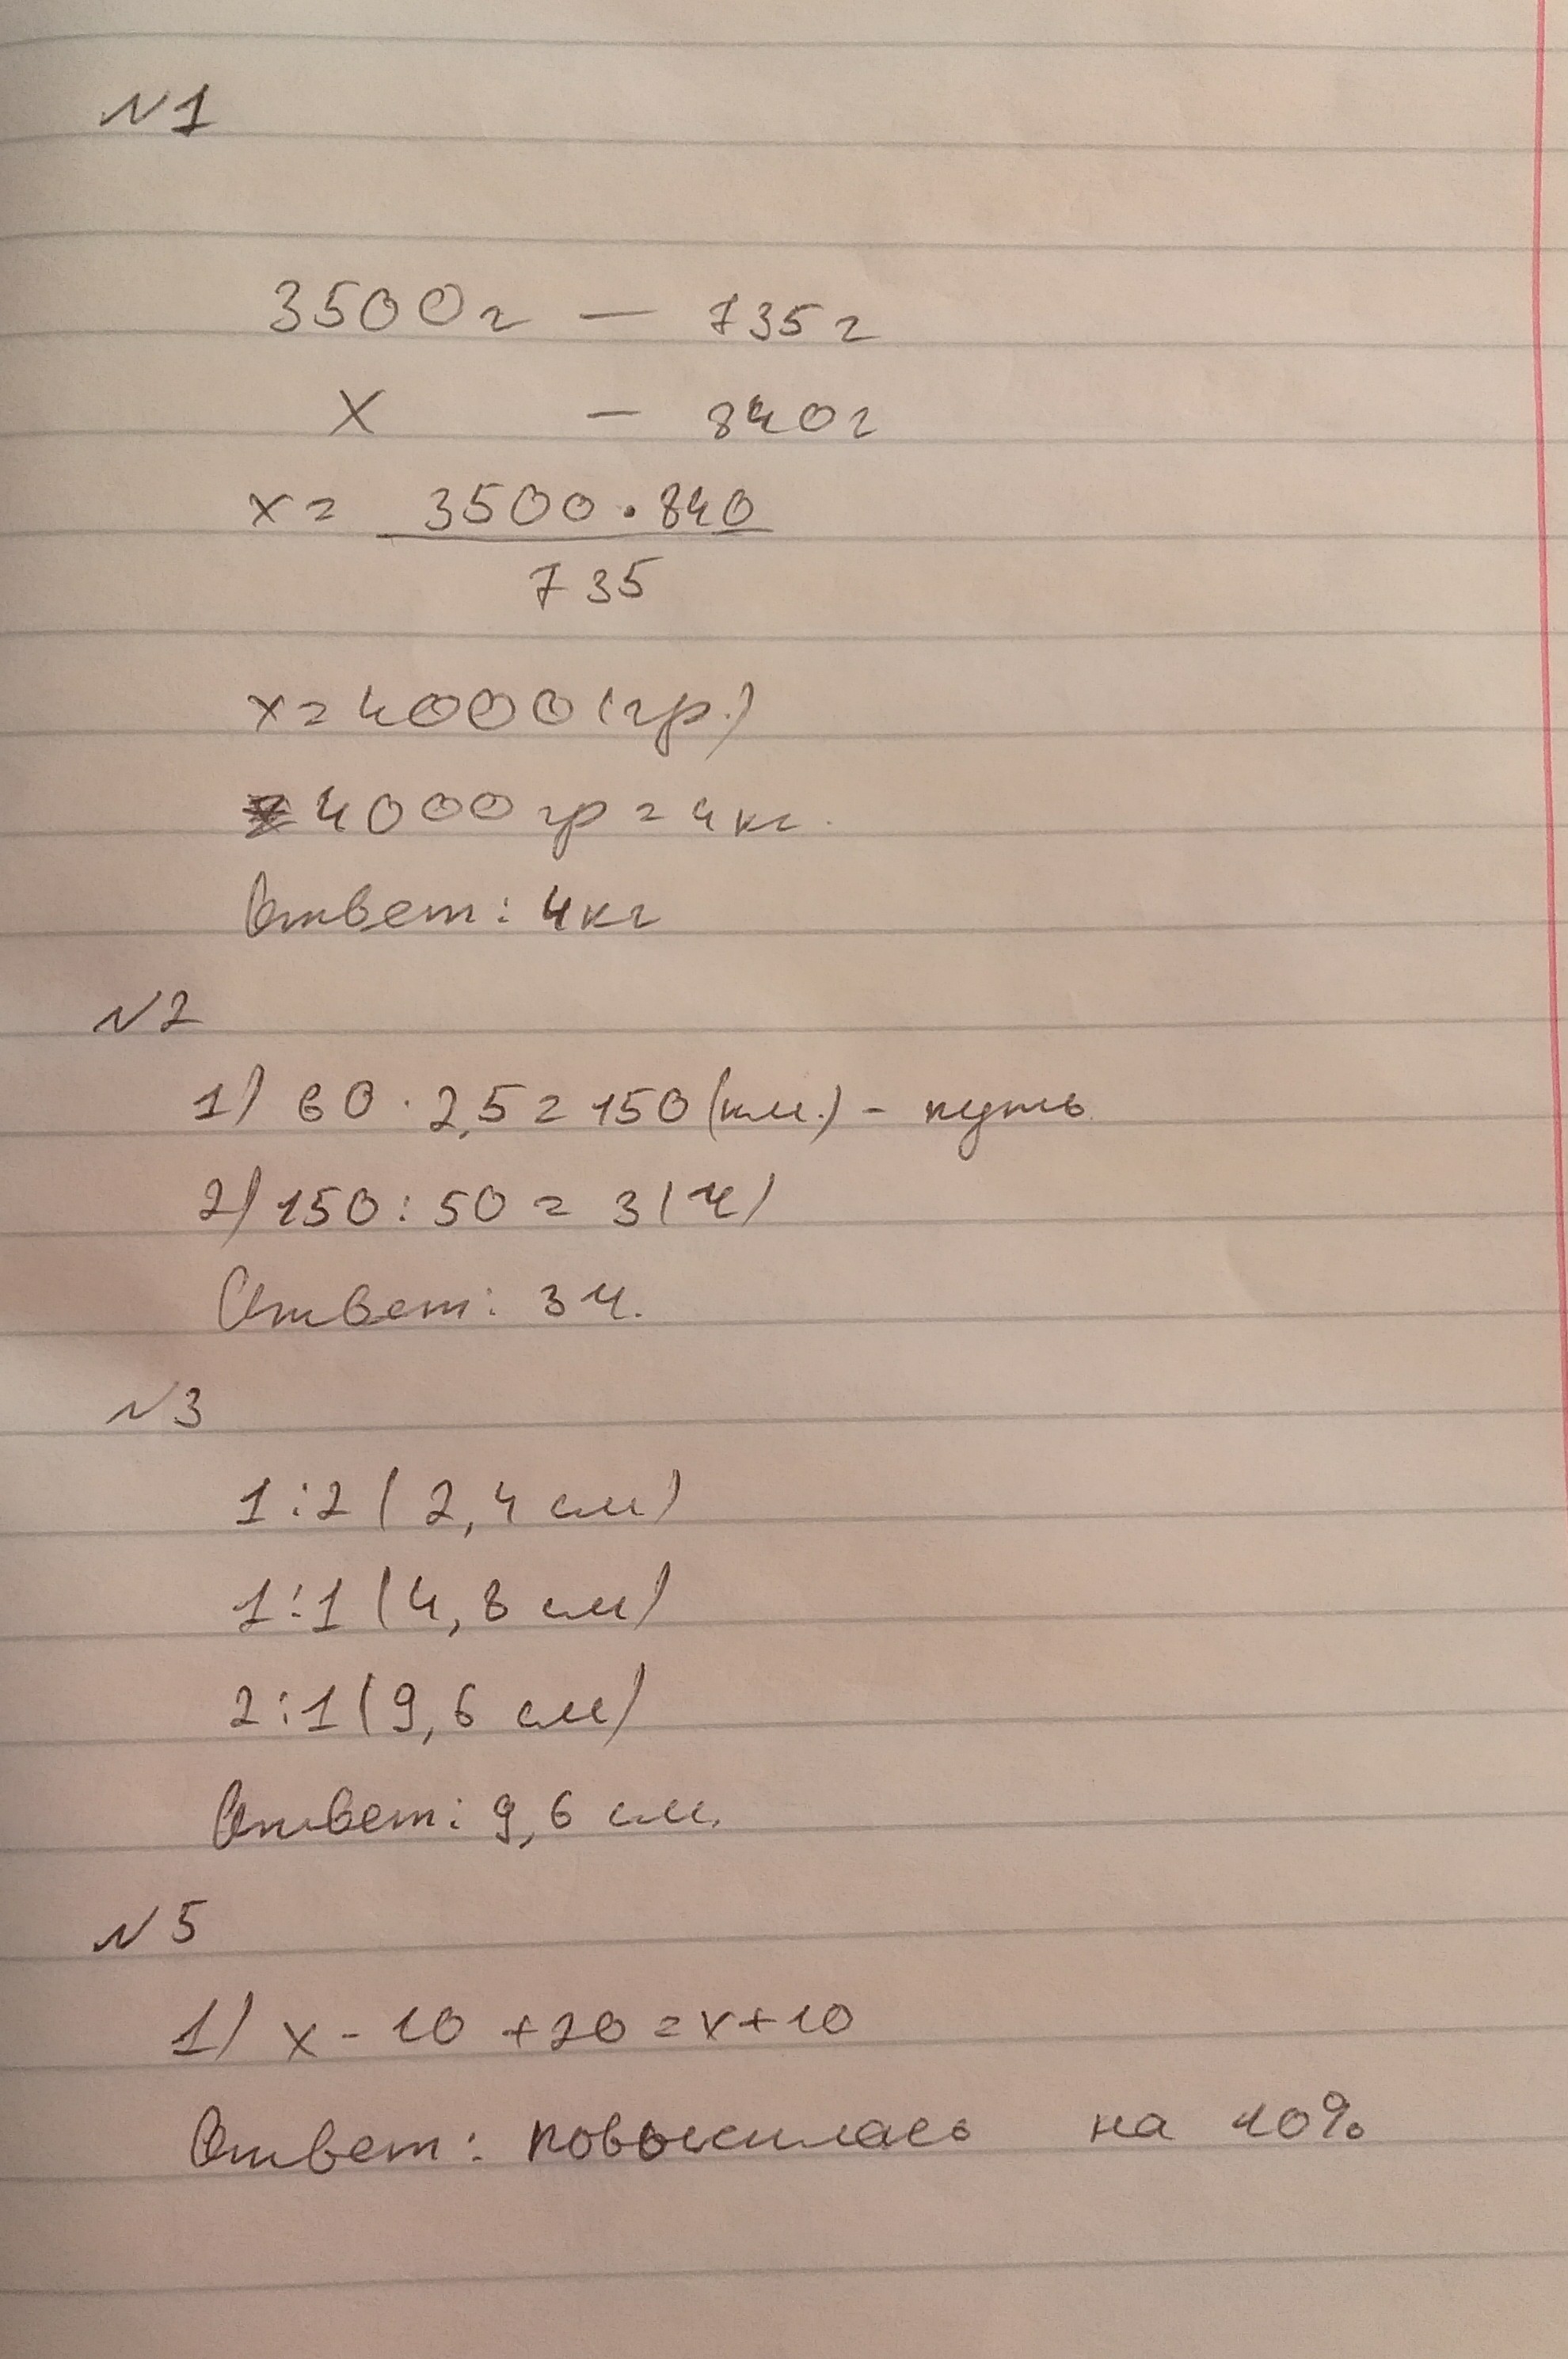 №1
3500г — 735г
x — 840г
x = 3500 · 840
735
x = 4000 (гр.)
4000 гр = 4 кг.
Ответ: 4 кг
№2
1) 60 · 2,5 = 150 (км.) - путь
2) 150 : 50 = 3 (ч)
Ответ: 3 ч.
№3
1:2 (2,4 см)
1:1 (4,8 см)
2:1 (9,6 см)
Ответ: 9,6 см.
№5
1) x - 10 + 20 = x + 10
Ответ: повысилась на 10%